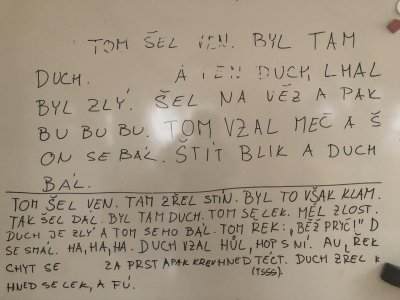 TOM ŠEL VEN. BYL TAM
DUCH. A TEN DUCH LHAL
BYL ZLÝ. ŠEL NA VĚZ A PAK
BU BU BU. TOM VZAL MEČ A Š
ON SE BÁL. ŠTÍT BLIK A DUCH
BÁL.
TOM ŠEL VEN. TAM ZŘEL STÍN. BYL TO VŠAK KLAM.
TAK ŠEL DÁL. BYL TAM DUCH. TOM SE LEK. MĚL ZLOST.
DUCH JE ZLÝ A TOM SE HO BÁL. TOM ŘEK: „BĚŽ PRYČ!" D
SE SMÁL. HA, HA, HA. DUCH VZAL HŮL, HOP S NÍ. AU, ŘEK
CHYT SE ZA PRST A PAK KREV HNED TÉCT. DUCH ZŘEL K
(TSSS).
HNED SE LEK, A FÚ.